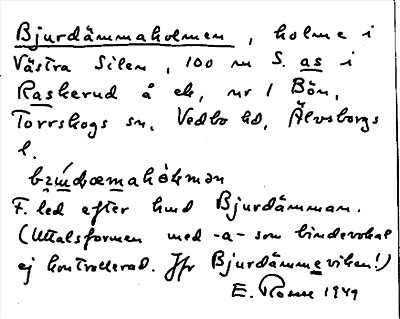 Bjurdämmaholmen, holme i
Västra Silen, 100 m S. as i
Raskerud å ek, nr 1 Bön,
Torrskogs sn, Vedbo hd, Älvsborgs
l.
F. led efter hmd Bjurdämman.
(Uttalsformen med -a- som bindevokal
ej kontrollerad. Jfr Bjurdämmeviken!)
E. Rosell 1949